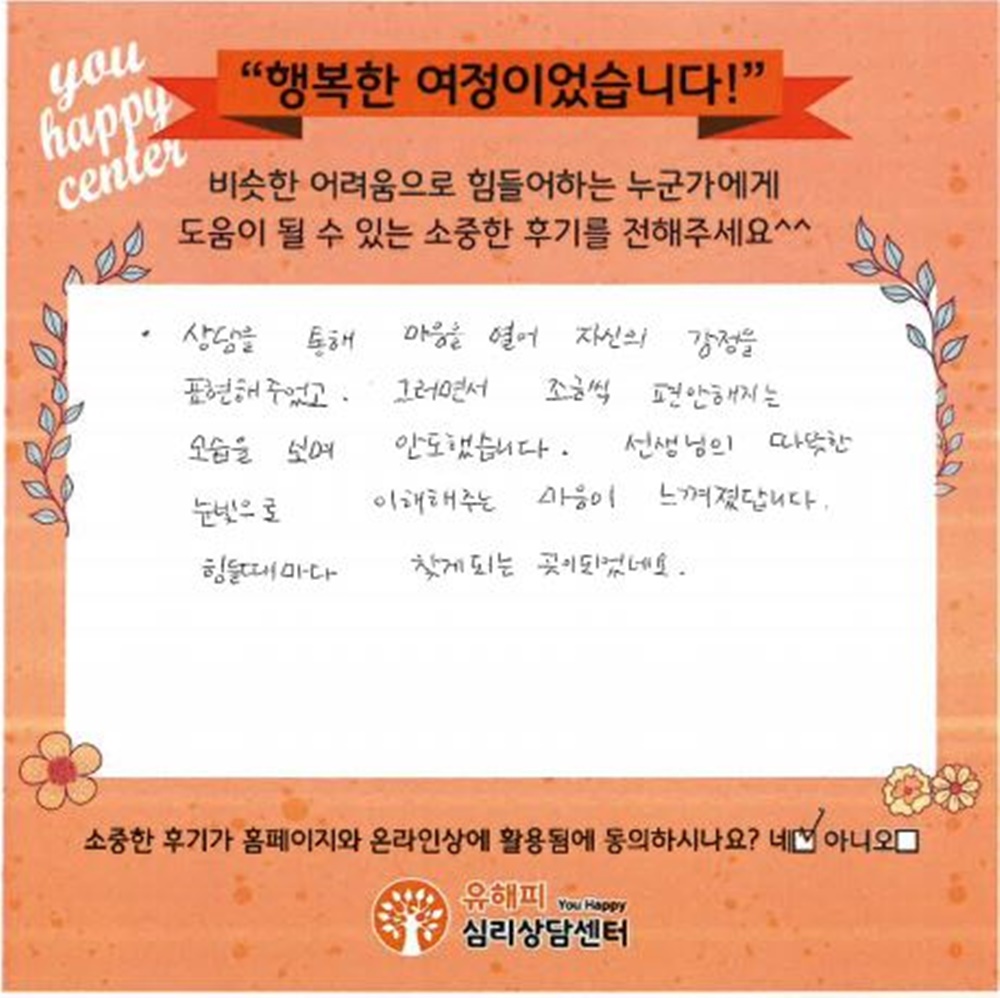 you
happy
center
“행복한 여정이었습니다!”
비슷한 어려움으로 힘들어하는 누군가에게
도움이 될 수 있는 소중한 후기를 전해주세요^^
· 상담을 통해 마음을 열어 자신의 감정을
표현해주었고. 그러면서 조금씩 편안해지는
모습을 보며 안도했습니다. 선생님의 따뜻한
눈빛으로 이해해주는 마음이 느껴졌답니다.
힘들때마다 찾게되는 곳이되었네요.
소중한 후기가 홈페이지와 온라인상에 활용됨에 동의하시나요? 네☑ 아니오☐
유해피 You Happy
심리상담센터